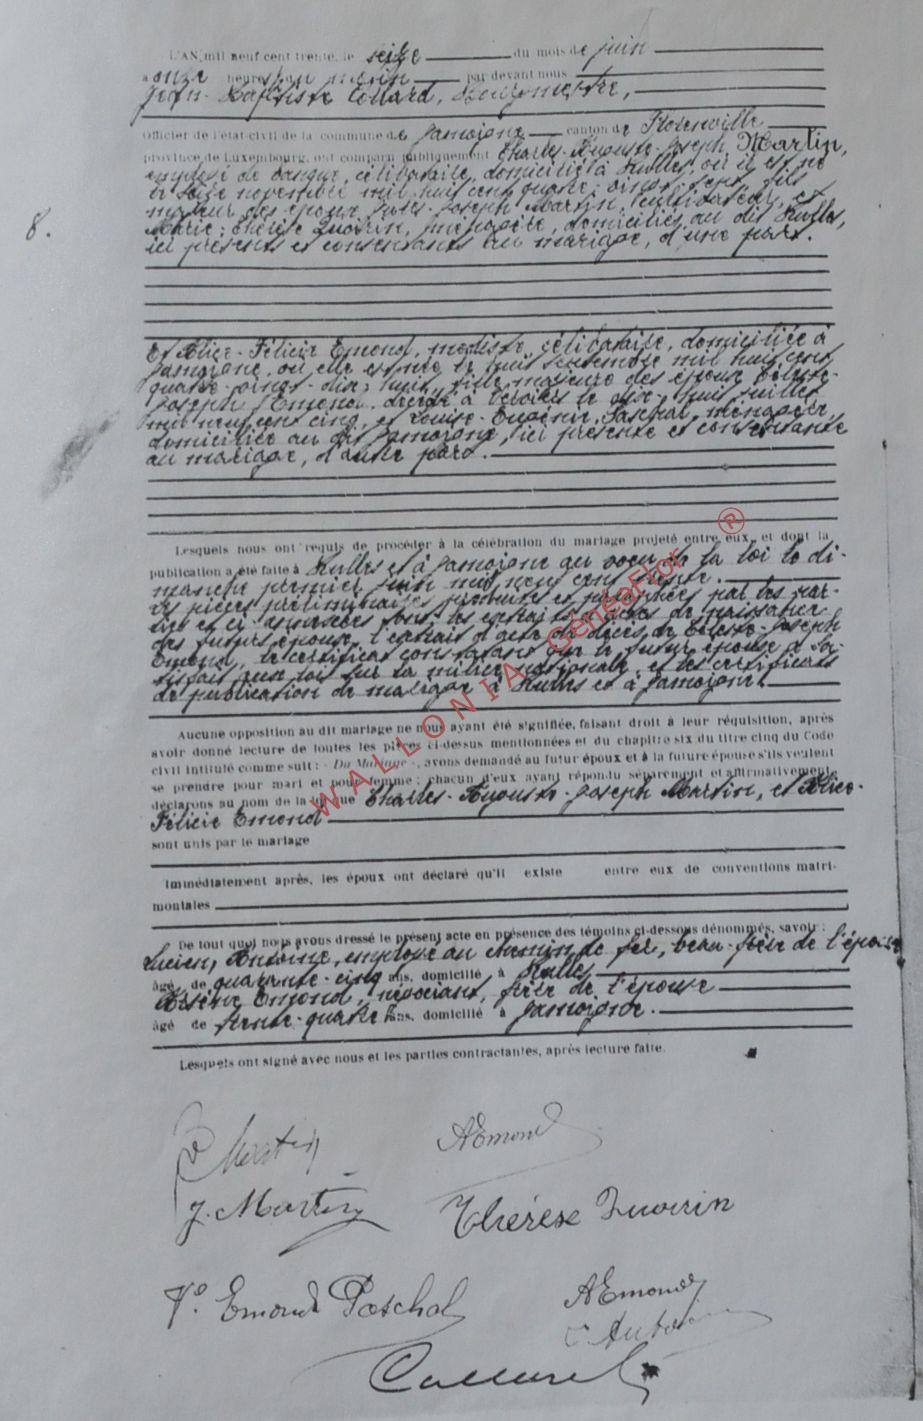 L'AN mil neuf cent trente, le seize du mois de juin
à onze heures du matin par devant nous
Jean-Baptiste Collard, Bourgmestre,
Officier de l'état-civil de la commune de Jamoigne canton de Florenville
province de Luxembourg, ont comparu publiquement Charles-Auguste-Joseph Martin,
employé de banque, célibataire, domicilié à Rulles, où il est né
le seize novembre mil huit cent quatre-vingt-sept, fils
majeur des époux Jules-Joseph Martin, cultivateur, et
Marie-Thérèse Quoirin, ménagère, domiciliés au dit Rulles,
ici présents et consentants au mariage, d'une part.
8.
Et Alice-Félicie Emond, modiste, célibataire, domiciliée à
Jamoigne, où elle est née le huit septembre mil huit cent
quatre-vingt-dix-huit, fille majeure des époux Céleste-
Joseph Emond, décédé à le dix-huit juillet
mil neuf cent cinq, et Louise-Eugénie Paschal, ménagère,
domiciliée au dit Jamoigne, ici présente et consentante
au mariage, d'autre part.
Lesquels nous ont requis de procéder à la célébration du mariage projeté entre eux, et dont la
publication a été faite à Rulles et à Jamoigne au voeu de la loi le di-
manche premier juin mil neuf cent trente.
Les pièces préliminaires produites et paraphées par les par-
ties et ci-annexées sont: les extraits d'actes de naissance
des futurs époux, l'extrait d'acte de décès de Céleste-Joseph
Emond, le certificat constatant que le futur époux a sa-
tisfait aux lois sur la milice nationale, et les certificats
de publication de mariage à Rulles et à Jamoigne.
Aucune opposition au dit mariage ne nous ayant été signifiée, faisant droit à leur réquisition, après
avoir donné lecture de toutes les pièces ci-dessus mentionnées et du chapitre six du titre cinq du Code
civil intitulé comme suit: « Du Mariage », avons demandé au futur époux et à la future épouse s'ils veulent
se prendre pour mari et pour femme; chacun d'eux ayant répondu séparément et affirmativement,
déclarons au nom de la loi que Charles-Auguste-Joseph Martin, et Alice-
Félicie Emond
sont unis par le mariage
Immédiatement après, les époux ont déclaré qu'il existe entre eux de conventions matri-
moniales
De tout quoi nous avons dressé le présent acte en présence des témoins ci-dessous dénommés, savoir:
Lucien Antoine, employé au chemin de fer, beau-frère de l'épouse
âgé de quarante-cinq ans, domicilié à Rulles
Arsène Emond, négociant, frère de l'épouse
âgé de trente-quatre ans, domicilié à Jamoigne.
Lesquels ont signé avec nous et les parties contractantes, après lecture faite.
Martin AEmond
J. Martin Thérèse Quoirin
Vº. Emond Paschal AEmond
Collard
WALLONIA GénéaFlor ®